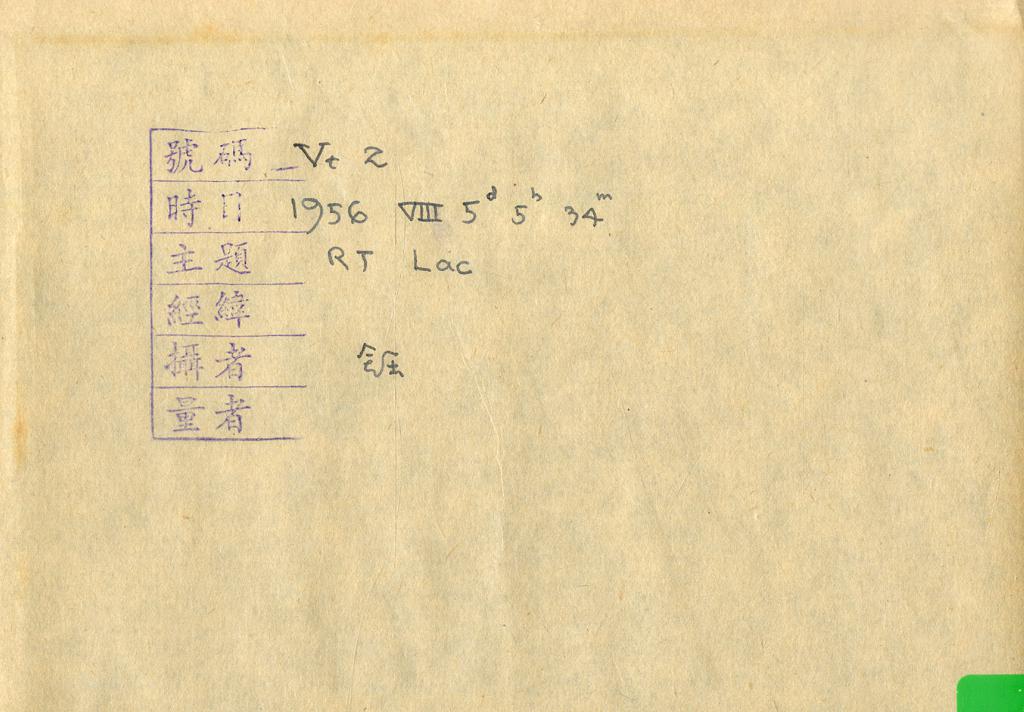 號碼 Vt 2
時日 1956 VIII 5d 5h 34m
主題 RT Lac
經緯
攝者
量者